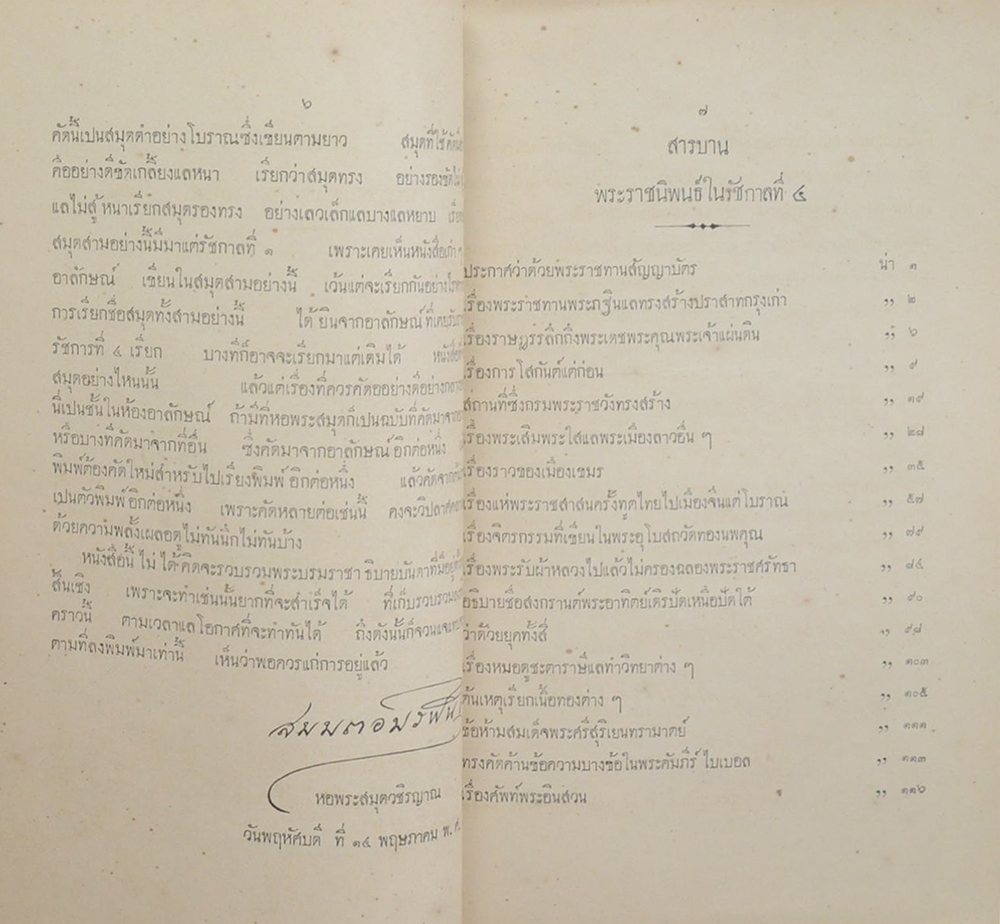 ๖
คัดนี้เปนสมุดดำอย่างโบราณซึ่งเขียนตามยาว สมุดที่ใช้
คืออย่างดีขัดเกลี้ยงแลหนา เรียกว่าสมุดทรง อย่างรอง
แลไม่สู้หนาเรียกสมุดรองทรง อย่างเลวเล็กแลบางแลหยาบ
สมุดสามอย่างนี้มีมาแต่รัชกาลที่ ๑ เพราะเคยเห็นหนังสือเก่า ๆ
อาลักษณ์ เขียนในสมุดสามอย่างนี้ เว้นแต่จะเรียกกันอย่างไร
การเรียกชื่อสมุดทั้งสามอย่างนี้ ได้ยินจากอาลักษณ์ที่เคย
รัชการที่ ๔ เรียก บางทีก็อาจจะเรียกมาแต่เดิมได้
สมุดอย่างไหนนั้น แล้วแต่เรื่องที่ควรคัดอย่างดีอย่าง
นี่เปนชั้นในห้องอาลักษณ์ ถ้ามีที่หอพระสมุดก็เปนฉบับที่คัดมาจาก
หรือบางที่คัดมาจากที่อื่น ซึ่งคัดมาจากอาลักษณ์อีกต่อหนึ่ง
พิมพ์ต้องคัดใหม่สำหรับไปเรียงพิมพ์อีกต่อหนึ่ง แล้วคัดจาก
เปนตัวพิมพ์อีกต่อหนึ่ง เพราะคัดหลายต่อเช่นนี้ คงจะวิปลาศ
ด้วยความพลั้งเผลอดูไม่ทันนึกไม่ทันบ้าง
หนังสือนี้ ไม่ได้คิดจะรวบรวมพระบรมราชาธิบายบันดาที่มีอยู่
สิ้นเชิง เพราะจะทำเช่นนั้นยากที่จะสำเร็จได้ ที่เก็บรวบรวม
คราวนี้ ตามเวลาแลโอกาศที่จะทำทันได้ ถึงดังนั้นก็จวน
ตามที่ลงพิมพ์มาเท่านี้ เห็นว่าพอควรแก่การอยู่แล้ว
สมมตอมรพันธุ์
หอพระสมุดวชิรญาณ
วันพฤหัศบดี ที่ ๑๔ พฤษภาคม พ.
๗
สารบาน
พระราชนิพนธ์ในรัชกาลที่ ๔
ประกาศว่าด้วยพระราชทานสัญญาบัตร น่า ๑
เรื่องพระราชทานพระกฐินแลทรงสร้างปราสาทกรุงเก่า ,, ๒
เรื่องราษฎรรลึกถึงพระเดชพระคุณพระเจ้าแผ่นดิน ,, ๖
เรื่องการโสกันต์แต่ก่อน ,, ๙
สถานที่ซึ่งกรมพระราชวังทรงสร้าง ,, ๑๙
เรื่องพระเสิมพระใสแลพระเมืองลาวอื่น ๆ ,, ๒๘
เรื่องราวของเมืองเขมร ,, ๓๕
เรื่องแห่พระราชสาสนครั้งทูตไทยไปเมืองจีนแต่โบราณ ,, ๕๗
เรื่องจิตรกรรมที่เขียนในพระอุโบสถวัดทองนพคุณ ,, ๗๙
เรื่องพระรับผ้าหลวงไปแล้วไม่ครองฉลองพระราชศรัทธา ,, ๘๔
อธิบายชื่อสงกรานต์พระอาทิตย์เดิรปัดเหนือปัดใต้ ,, ๙๐
ว่าด้วยยุคทั้งสี่ ,, ๙๘
เรื่องหมอดูชะตาราษีแลทำวิทยาต่าง ๆ ,, ๑๐๓
ต้นเหตุเรียกเนื้อทองต่าง ๆ ,, ๑๐๕
ข้อห้ามสมเด็จพระศรีสุริเยนทรามาตย์ ,, ๑๑๑
ทรงคัดค้านข้อความบางข้อในพระคัมภีร์ไบเบอล ,, ๑๑๓
เรื่องศัพท์พระอินสวน ,, ๑๑๖